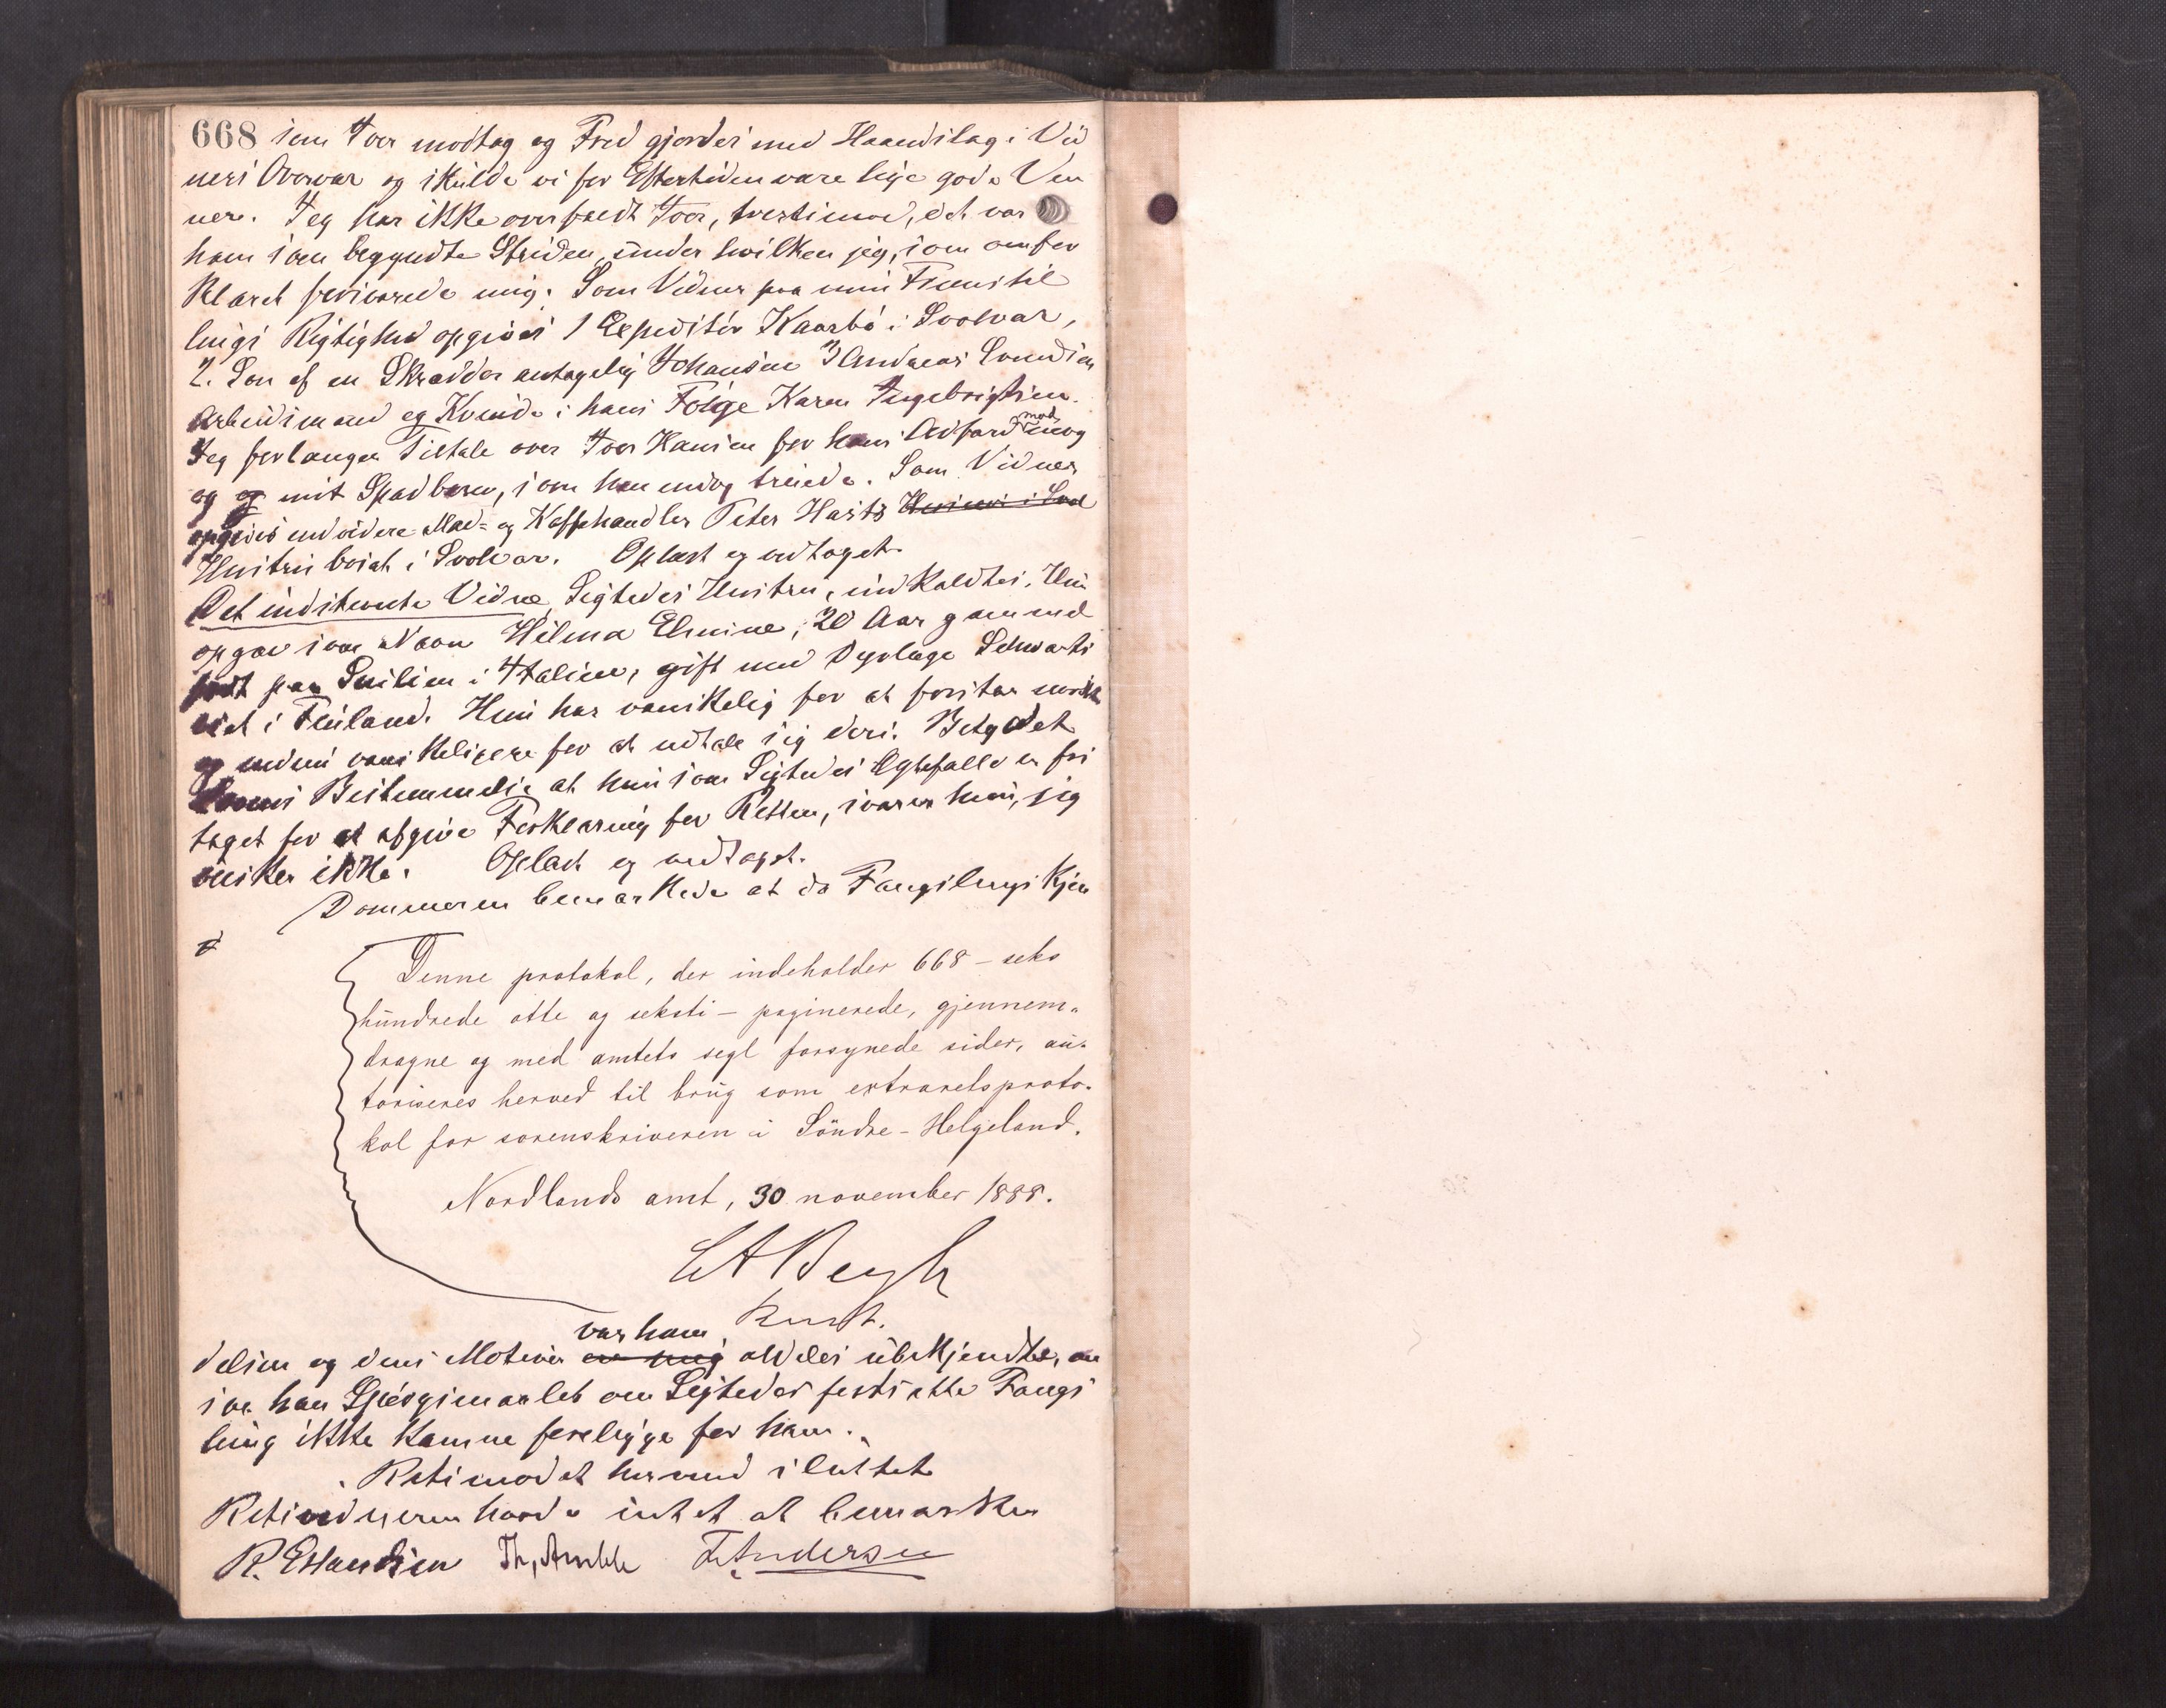 668 som Ivar modtog og Fred gjordes med Haandslag i Vid
ners Overvær og skulde vi for Eftertiden være lige gode Ven
ner. Jeg har ikke overfaldt Ivar, tvertimod, det var
ham som begyndte Striden, under hvilken jeg, som omfor
klaret forsvarede mig. Som Vidner paa min Fremstil
lings Rigtighed opgives 1 Expeditør Kaarbø i Svolvær,
2. Søn af en Skrædder antagelig Johansen 3 Andreas Svendsen
Arbeidsmand og Kvinde i hans Følge Karen Ingebrigtsen.
Jeg forlanger Tiltale over Ivar Hansen for hans Adfærd mod mig
og og mit Spædbarn, som han endog truede. Som Vidner
opgives endvidere Mad- og Kaffehandler Peter Hartz Hustru i Svol
Hustru bosat i Svolvær. Oplæst og vedtaget.
Det indstevnte Vidne Sigtedes Hustru, indkaldtes. Hun
opgav som Navn Hilma Elmine, 20 Aar gammel
født paa Sicilien i Italien, gift med Dyrlæge Schwartz
i Finland. Hun har vanskelig for at forstaa norsk
og endnu vanskeligere for at udtale sig deri. Betydet
Lovens Bestemmelse at hun som Sigtedes Ægtefælle er fri
taget for at afgive Forklaring for Retten, svarer hun, jeg
ønsker ikke. Oplæst og vedtaget.
Dommeren bemærkede at da Fængslings Kjen
Denne protokol, der indeholder 668 - seks
hundrede otte og seksti - paginerede, gjennem-
dragne og med amtets segl forsynede sider, au-
toriseres herved til brug som extraretsproto-
kol for sorenskriveren i Søndre-Helgeland.
Nordlands amt, 30 november 1888.
var ham
delsen og dens Motiver er mig aldeles ubekjendte, an
saa han Spørgsmaalet om Sigtedes fortsatte Fængs
ling ikke kunne foreligge for ham.
Retsmødet hermed sluttet
Retsvidnerne havde intet at bemærke
R. Erlandsen F. Andersen